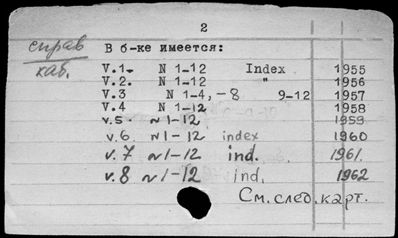 2
справ
каб.
В б-ке имеется:
V.1. N 1-12 Index 1955
V.2. N 1-12 " 1956
V.3 N 1-4, -8 9-12 1957
V.4 N 1-12 1958
v.5 N 1-12 1959
v.6 N 1-12 index 1960
v.7 N 1-12 ind. 1961.
v.8 N 1-12 ind. 1962
См. след. карт.